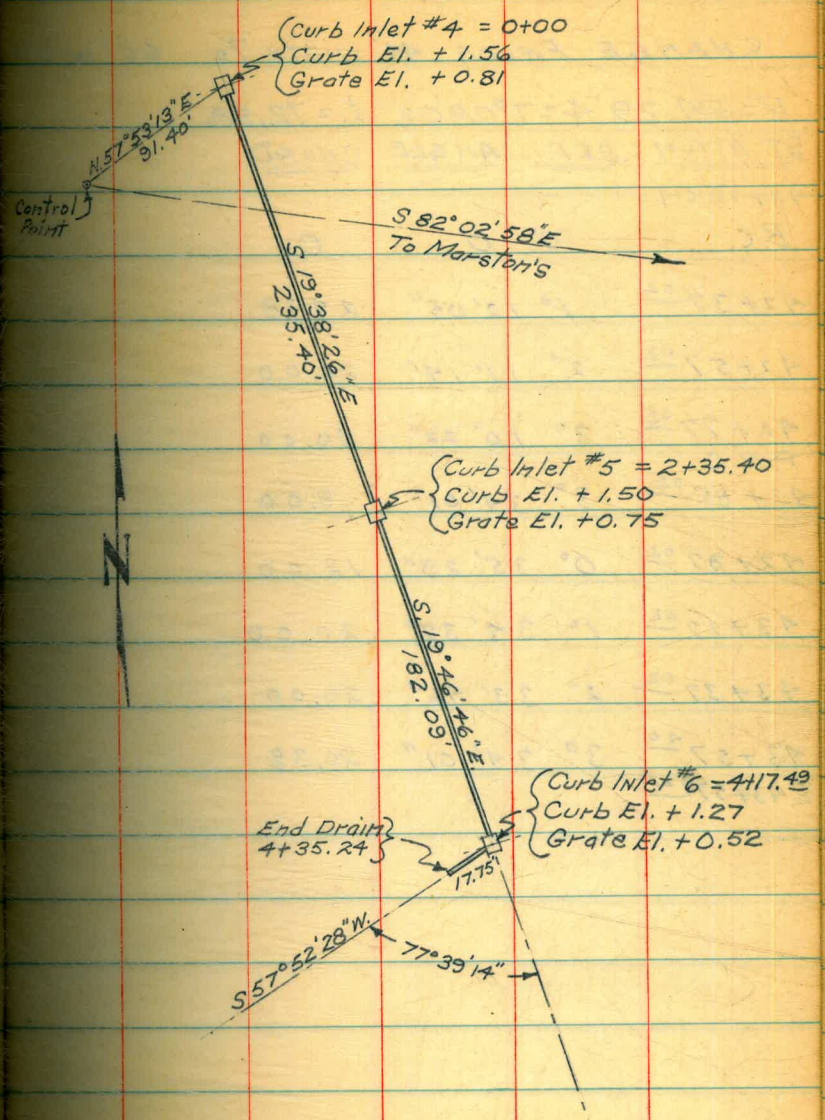 Curb Inlet #4 = 0+00
Curb El. + 1.56
Grate El. + 0.81
N. 57°53'13" E.
91.40'
Control
Point
S 82°02'58" E
To Marston's
S 19°38'26" E
235.40'
Curb Inlet #5 = 2+35.40
Curb El. + 1.50
Grate El. +0.75
N
S 19°46'46" E
182.09'
Curb Inlet #6 = 4+17.49
Curb El. + 1.27
Grate El. + 0.52
End Drain
4+35.24
17.75'
S 57°52'28" W.
77°39'14"